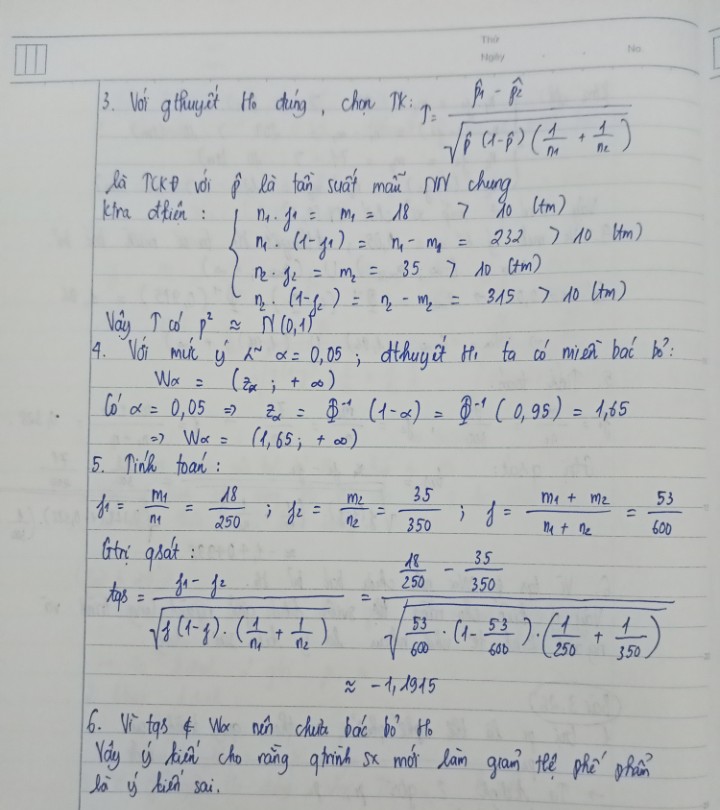 Thứ
Ngày
No
3. Với gthuyết H₀ đúng, chọn TK: T = (p̂₁ - p̂₂) / √(p̂ (1-p̂) (1/n₁ + 1/n₂))
là TCKĐ với p̂ là tần suất mẫu NN chung
ktra đkiện : { n₁. f₁ = m₁ = 18 > 10 (tm)
n₁. (1-f₁) = n₁ - m₁ = 232 > 10 (tm)
n₂. f₂ = m₂ = 35 > 10 (tm)
n₂. (1-f₂) = n₂ - m₂ = 315 > 10 (tm)
Vậy T có p² ≈ N(0,1)
4. Với mức ý α = 0,05 ; đthuyết H₁ ta có miền bác bỏ:
Wα = (zα ; +∞)
Có α = 0,05 => zα = Φ⁻¹ (1-α) = Φ⁻¹ (0,95) = 1,65
=> Wα = (1,65 ; +∞)
5. Tính toán :
f₁ = m₁/n₁ = 18/250 ; f₂ = m₂/n₂ = 35/350 ; f = (m₁ + m₂)/(n₁ + n₂) = 53/600
Gtrị qsát :
tqs = (f₁ - f₂) / √(f (1-f) . (1/n₁ + 1/n₂)) = (18/250 - 35/350) / √(53/600 . (1 - 53/600) . (1/250 + 1/350))
≈ -1,1915
6. Vì tqs ∉ Wα nên chưa bác bỏ H₀
Vậy ý kiến cho rằng qtrình sx mới làm giảm tlệ phế phẩm
là ý kiến sai.